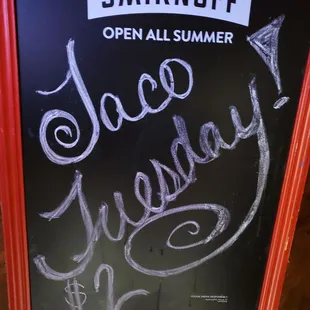 SMIRNOFF
OPEN ALL SUMMER
Taco
Tuesday!
$2